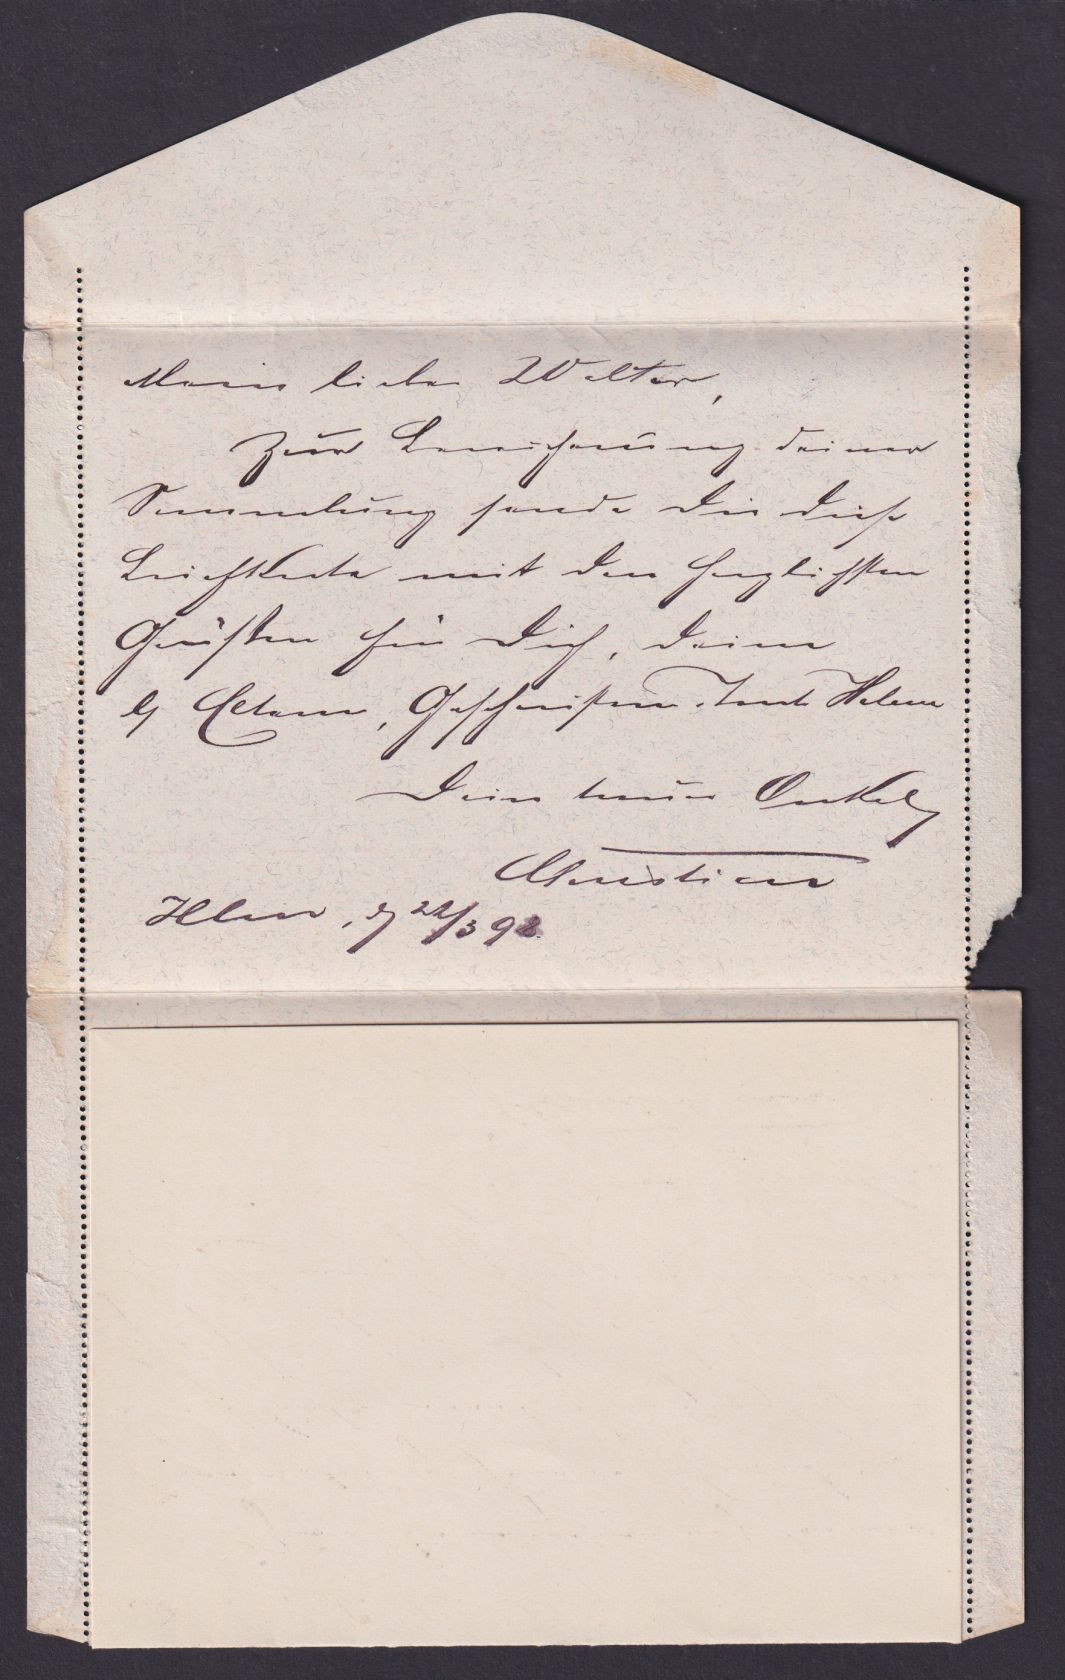 Mein lieber Walter,
Zur Bereicherung deiner
Sammlung sende Dir diese
Briefkarte mit den herzlichsten
Grüßen für Dich, deine
l. Eltern, Geschwister u. Tante Helene
Dein treuer Onkel
Christian
22/3 98.